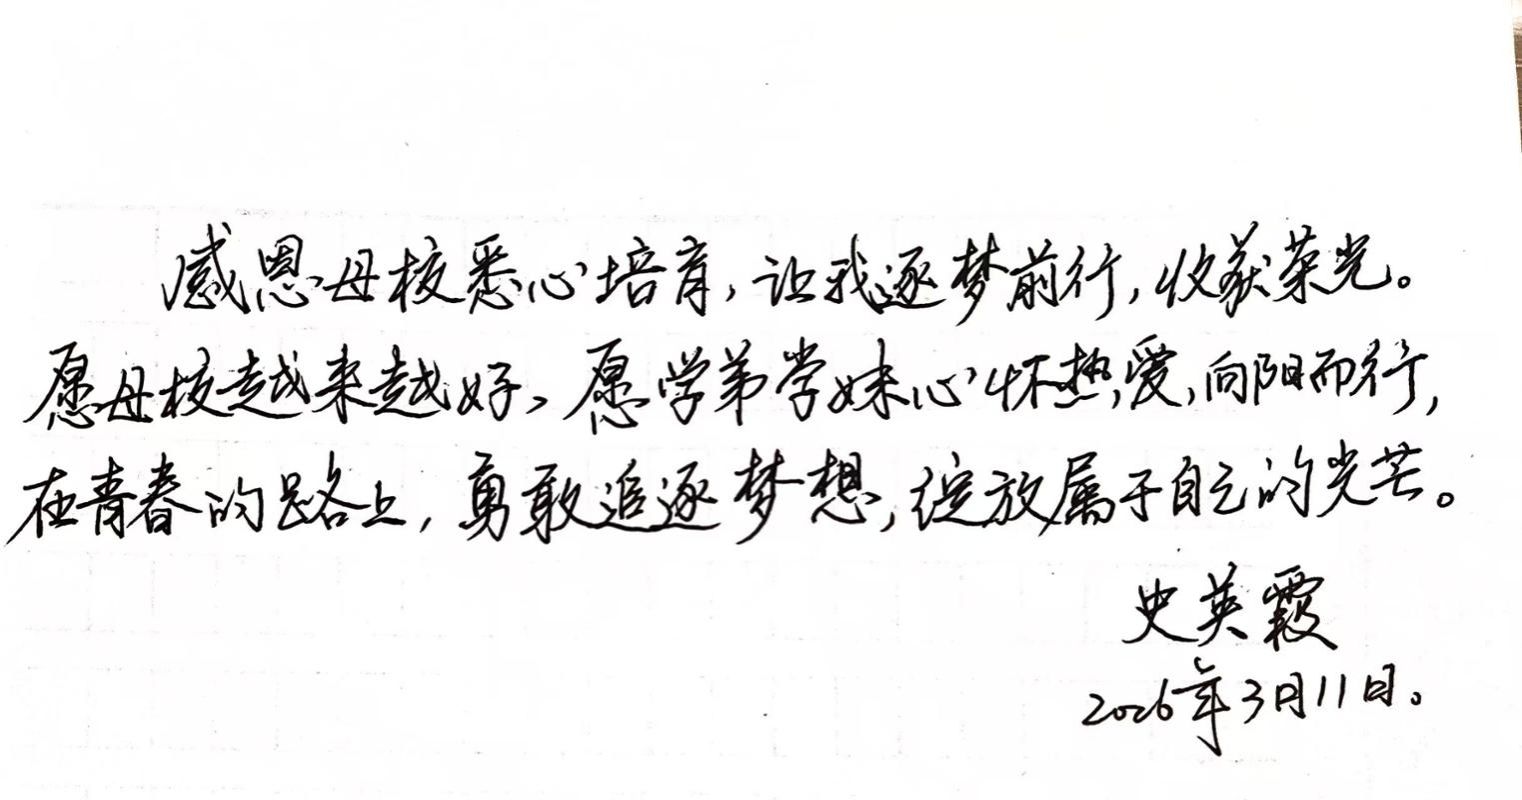 感恩母校悉心培育,让我逐梦前行,收获荣光。
愿母校越来越好、愿学弟学妹心怀热爱,向阳而行,
在青春的路上,勇敢追逐梦想,绽放属于自己的光芒。
史英霞
2026年3月11日。